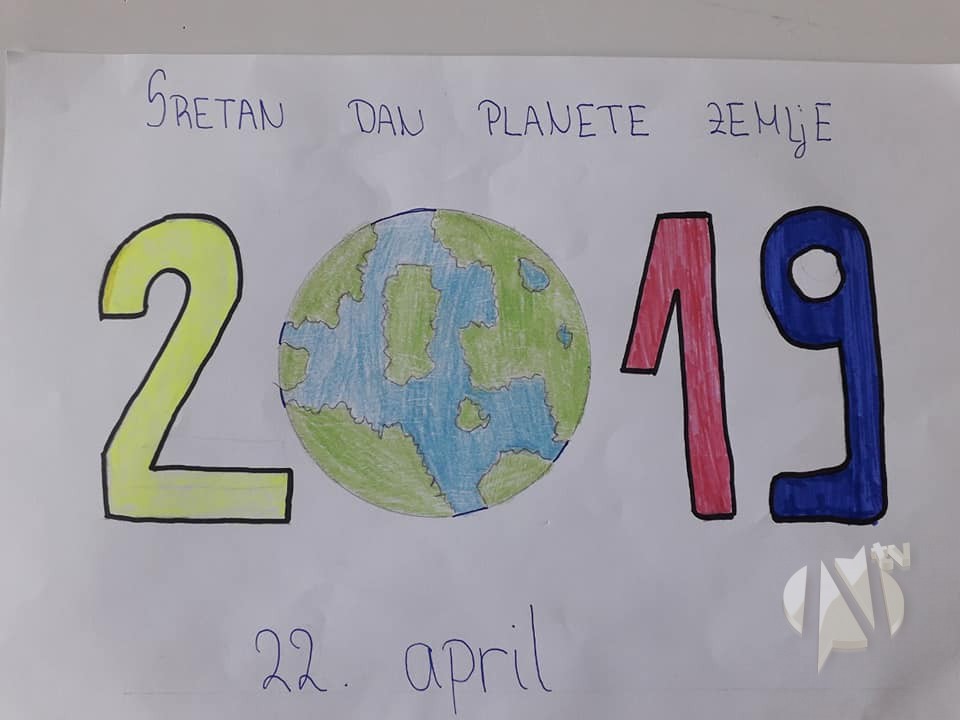 SRETAN DAN PLANETE ZEMLjE
2019
22. april
N tv